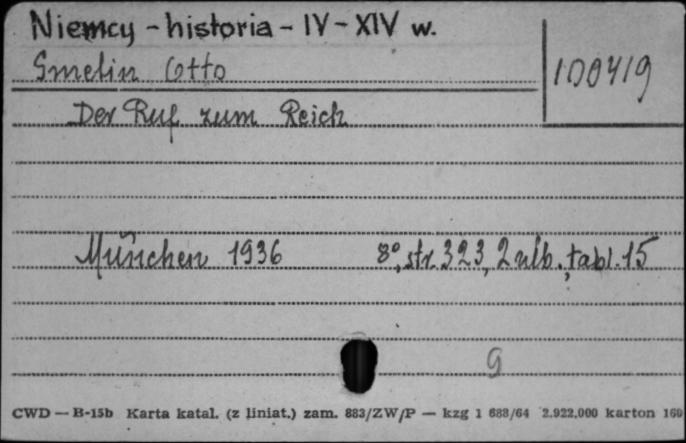 Niemcy - historia - IV - XIV w.
Gmelin Otto
100419
Der Ruf zum Reich
München 1936 8°, str. 323, 2 nlb., tabl. 15
9
CWD — B-15b Karta katal. (z liniat.) zam. 883/ZW/P — kzg 1 688/64 2.922.000 karton 160